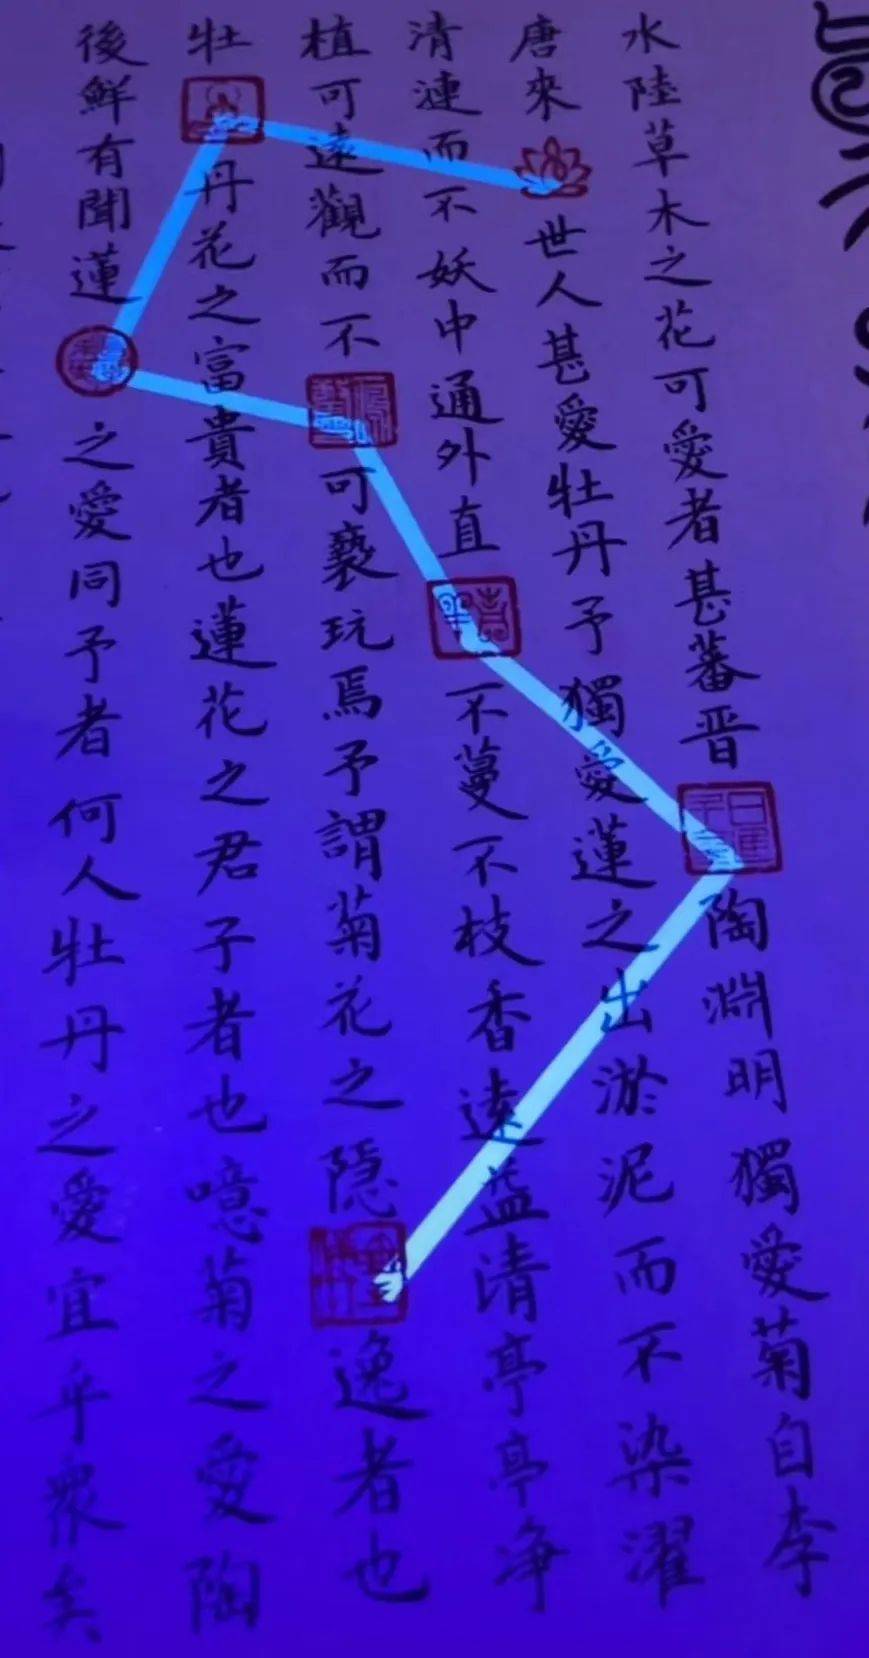 水陸草木之花可愛者甚蕃晋陶淵明獨愛菊自李
唐來世人甚愛牡丹予獨愛蓮之出淤泥而不染濯
清漣而不妖中通外直不蔓不枝香遠益清亭亭净
植可遠觀而不可褻玩焉予謂菊花之隱逸者也
牡丹花之富貴者也蓮花之君子者也噫菊之愛陶
後鮮有聞蓮之愛同予者何人牡丹之愛宜乎衆矣